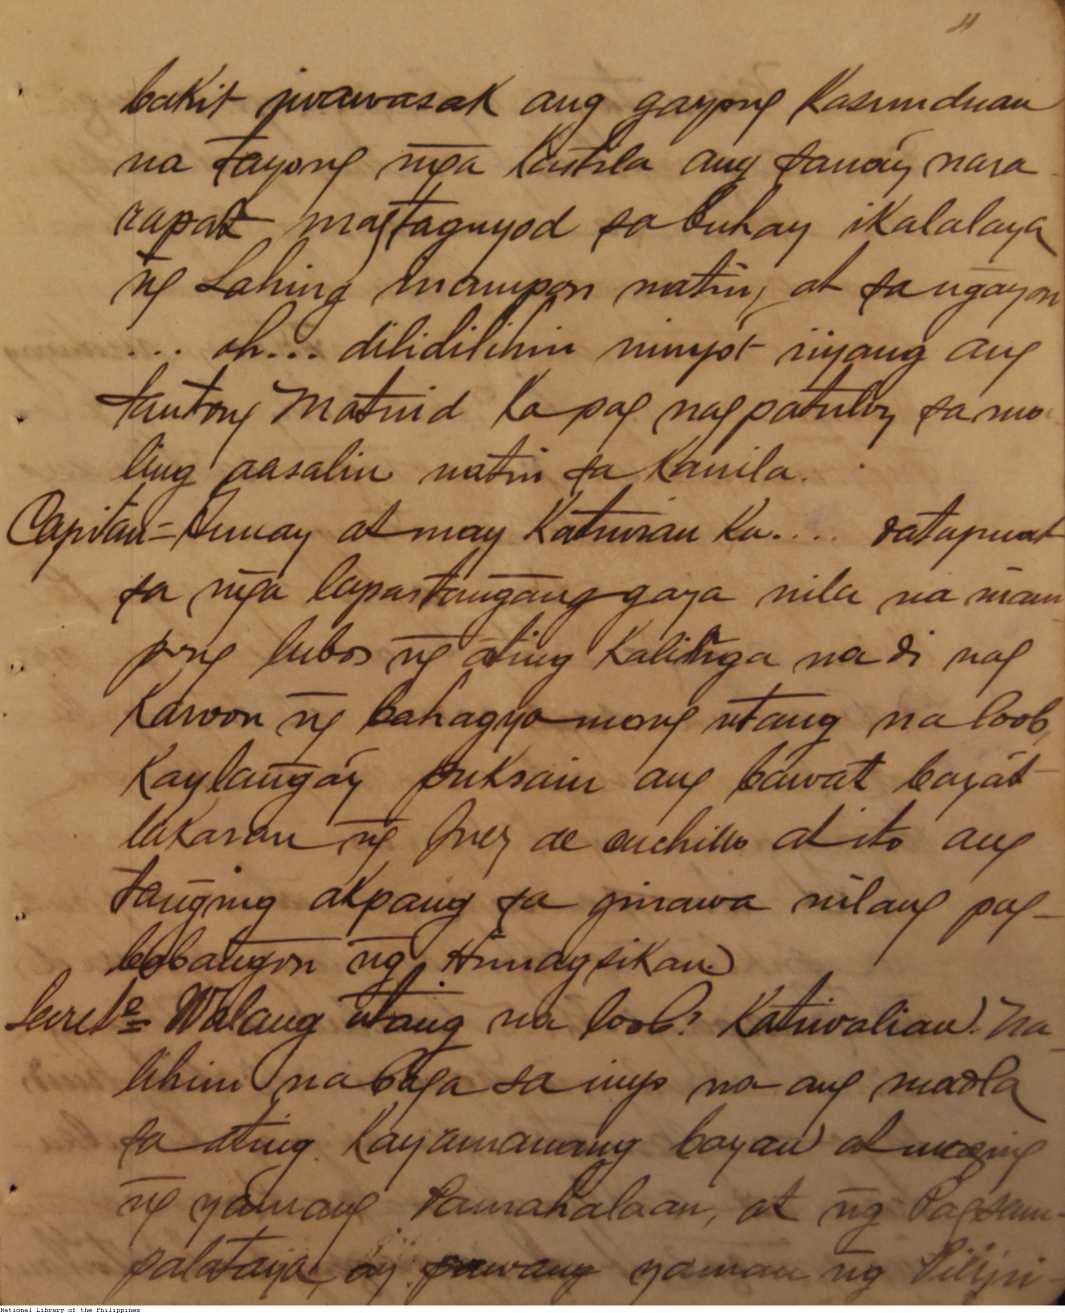 11
bakit iwawasak ang gayong Kasunduan
na tayong mg̃a Kastila ang tanáng nara
rapat magtaguyod sa buhay ikalalaya
ng̃ Lahing inampon natin, at sa ng̃ayon
... oh... dilidilihin ninyo't iyang ang
tantong Matuid Kapag nagpatuloy sa mu
ling aasalin natin sa Kanila.
Capitan = Tunay at may Katuiran Ka.... datapuat
sa mg̃a lapastang̃ang gaya nila na inam
pong lubos ng̃ ating Kaling̃a na di nag
Karoon ng̃ bahagya mang utang na loob,
Kaylang̃áy puksain ang bawat bayát
lakaran ng̃ Juez de cuchillo at ito ang
tang̃ing akpang sa ginawa nilang pag-
babang̃on ng̃ Himagsikan.
Secreto = Walang utang na loob? Katiwalian! Na
lihim na baga sa inyo na ang madla
sa ating Kayamanang bayan at maging
ng̃ yamang Pamahalaan, at ng̃ Pagsam-
palataya, ay pawang yaman ng̃ Pilipi-
National Library of the Philippines